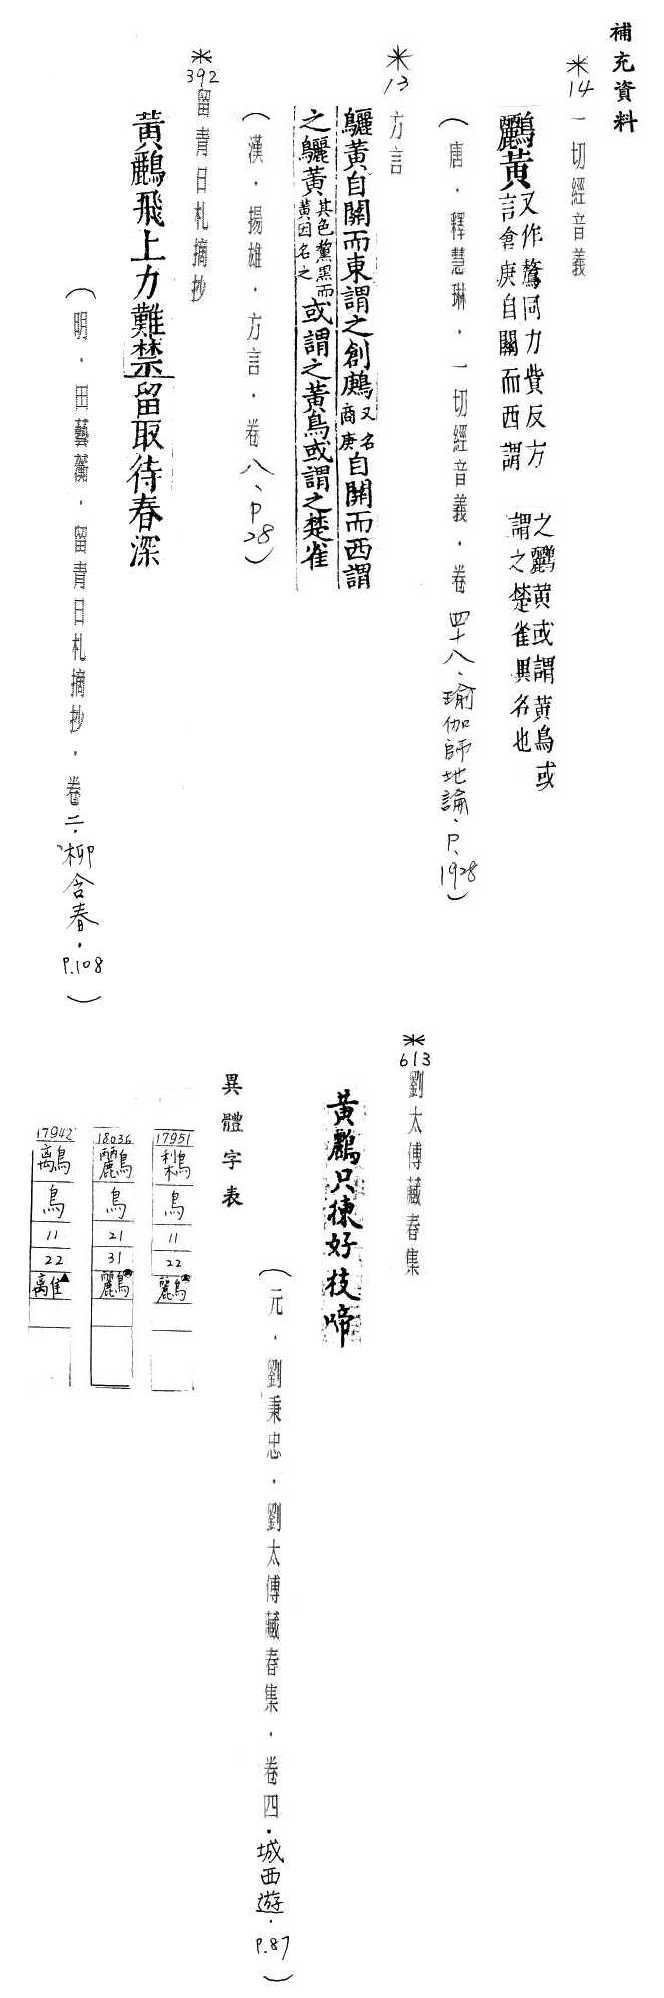 補充資料
*14 一切經音義
鸝黃 又作鵹同力貲反方
言倉庚自關而西謂
之鸝黃或謂黃鳥或
謂之楚雀異名也
（唐．釋慧琳．一切經音義．卷四十八、瑜伽師地論．P.1928）
*13 方言
鸝黃自關而東謂之創鶊 又名商庚 自關而西謂
之鸝黃 其色黧黑而黃因名之 或謂之黃鳥或謂之楚雀
（漢．揚雄．方言．卷八、P28）
*392 留青日札摘抄
黃鸝飛上力難禁留取待春深
（明．田藝蘅．留青日札摘抄．卷二．柳含春．P.108）
*613 劉太傅藏春集
黃鸝只揀好枝啼
（元．劉秉忠．劉太傅藏春集．卷四．城西遊．P.87）
異體字表
17951
鳥
11
22
鸝
18036
鸝
鳥
21
31
鸝
17942
鳥
11
22
離